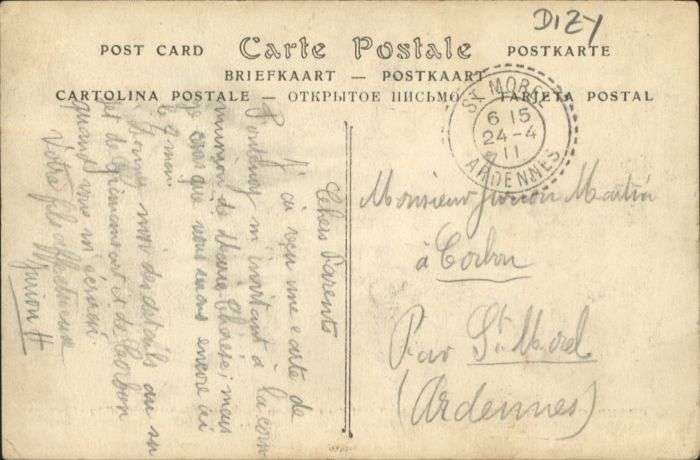 DIZY
POST CARD Carte Postale POSTKARTE
BRIEFKAART — POSTKAART
CARTOLINA POSTALE — ОТКРЫТОЕ ПИСЬМО — TARJETA POSTAL
ST MOREL
6 15
24-4
11
ARDENNES
Chers Parents
J'ai reçu une carte de
m'invitant à la com
munion de Marie Thérèse; mais
je crois que vous serez encore ici
le 7 mai.
Donnez moi des détails au su
jet de et de Corbon
quand vous m'écrirez.
Votre fils affectueux
H
Monsieur Martin
à Corbon
Par St Morel
(Ardennes)